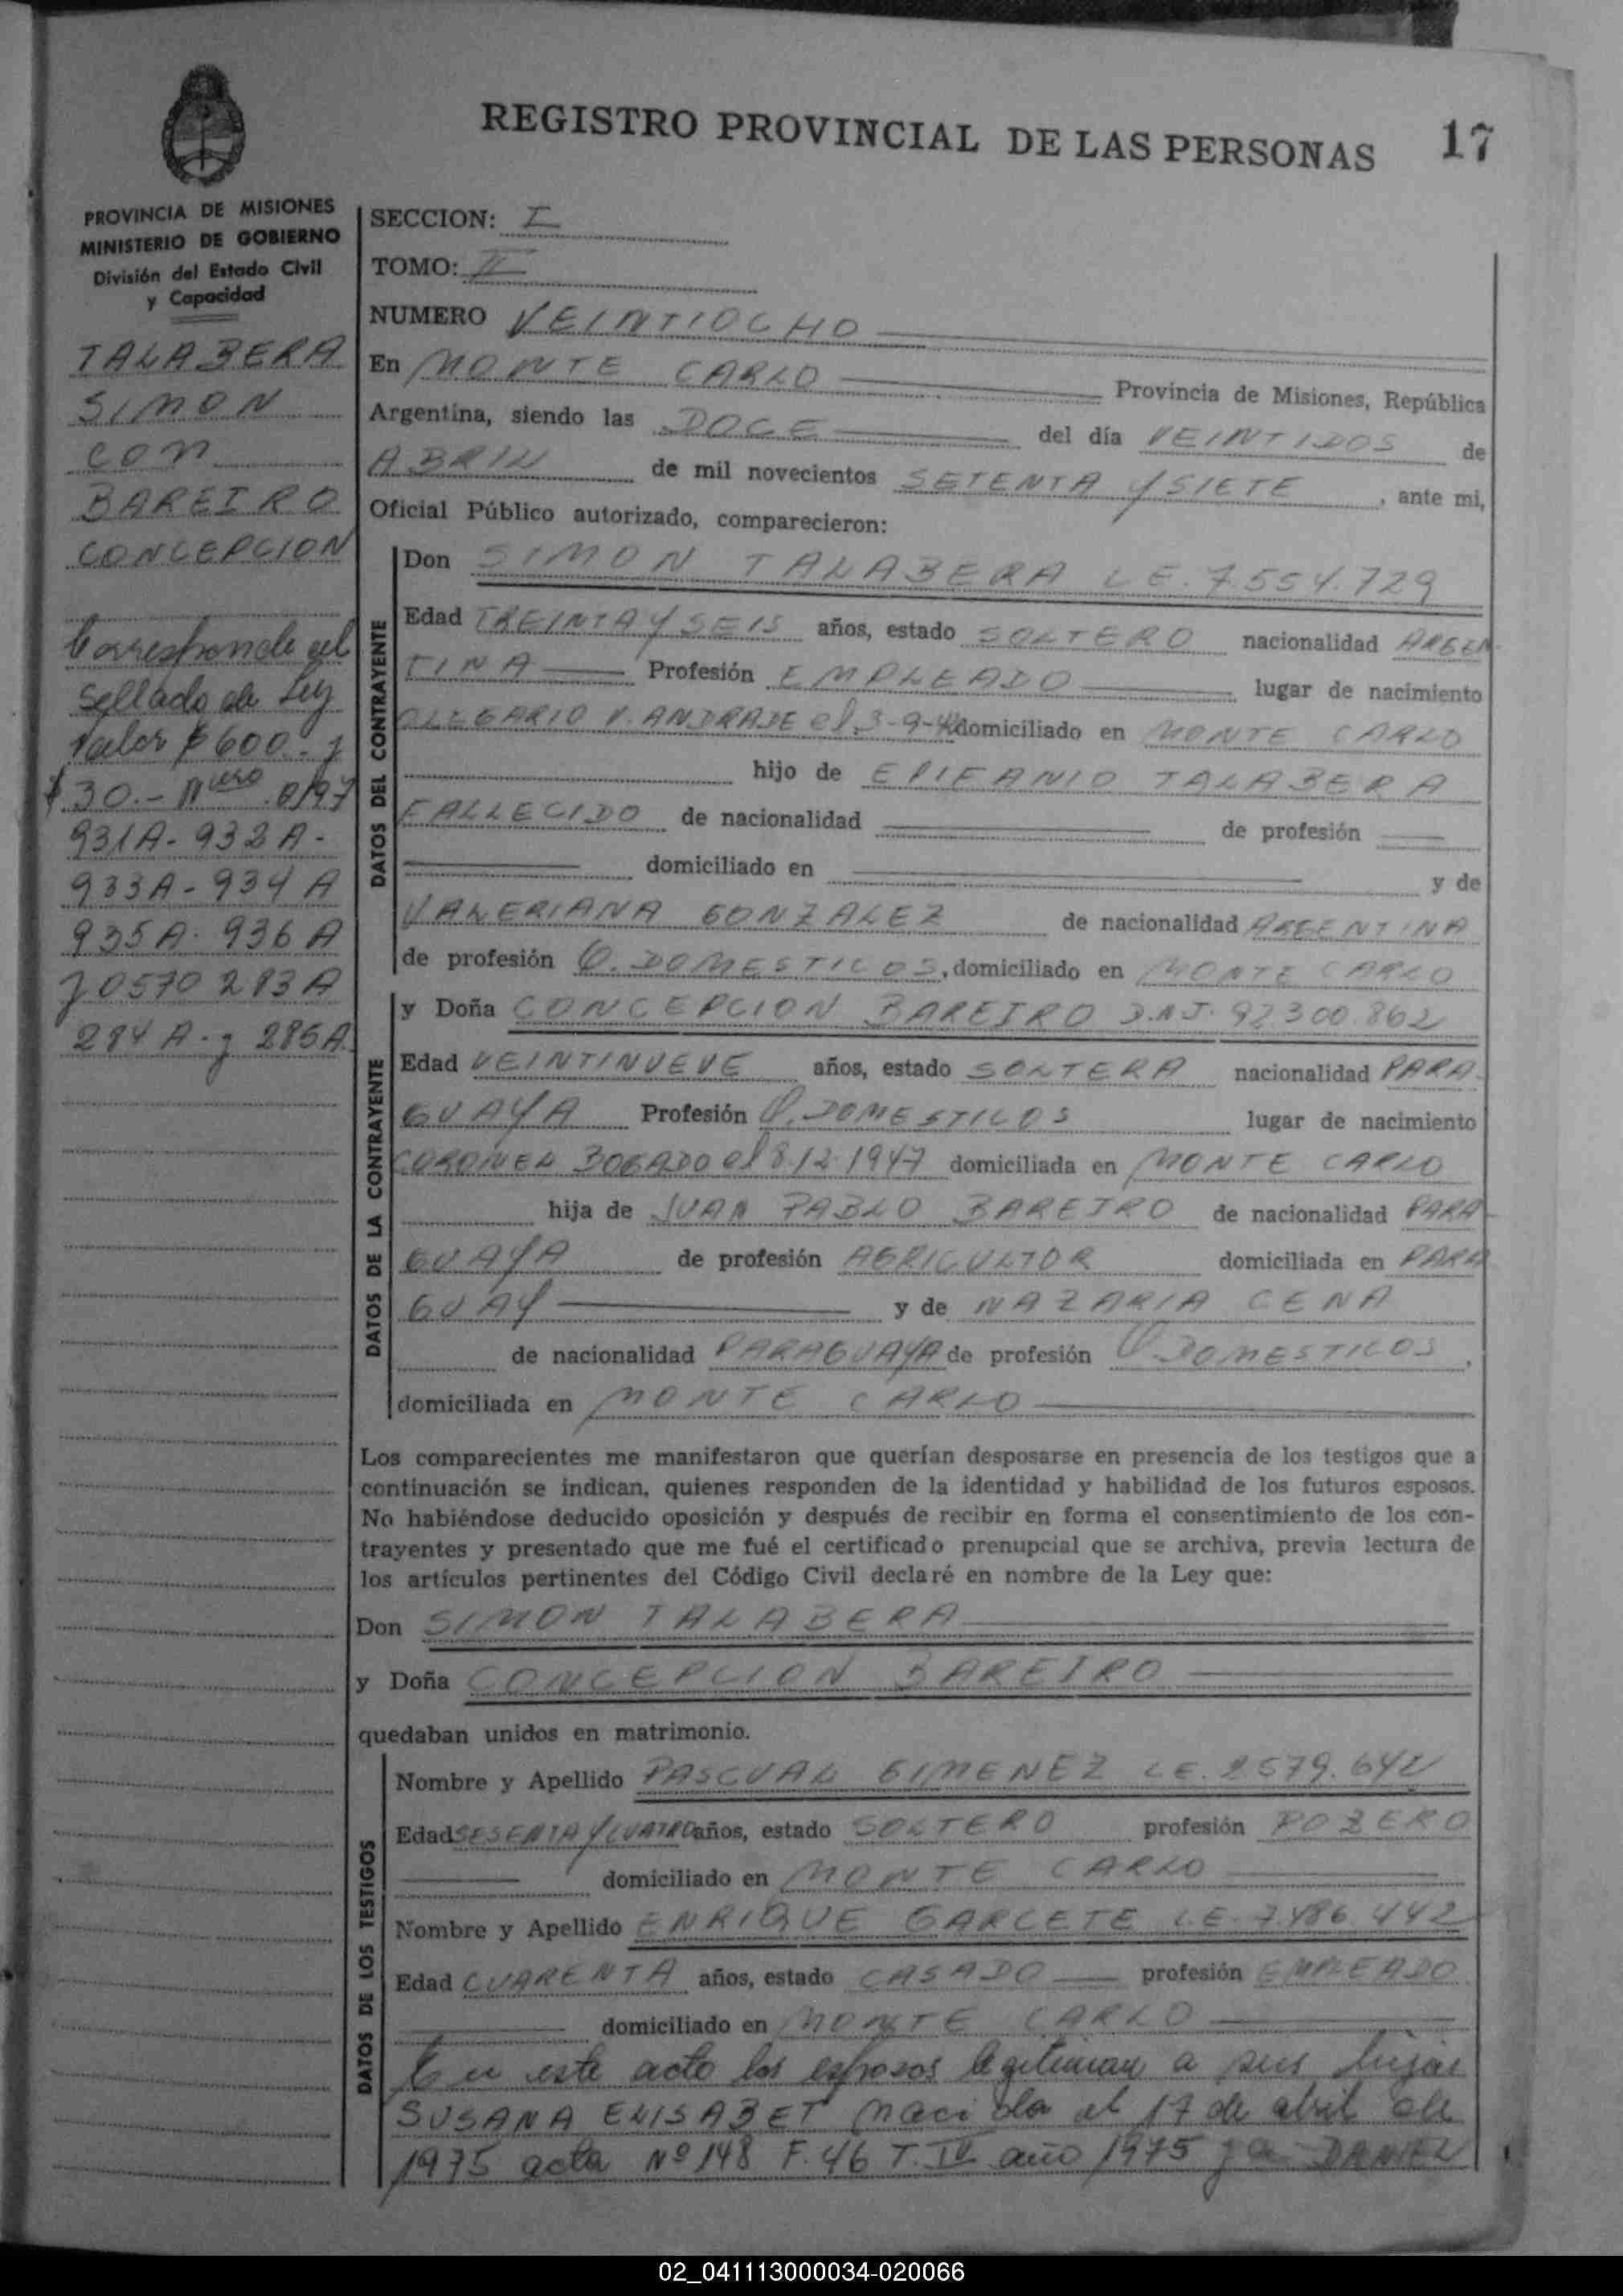 REGISTRO PROVINCIAL DE LAS PERSONAS 17
PROVINCIA DE MISIONES
MINISTERIO DE GOBIERNO
División del Estado Civil
y Capacidad
TALABERA
SIMON
CON
BAREIRO
CONCEPCION
Corresponde al
sellado de Ley
valor $ 600.- y
$ 30.- N
931A - 932A -
933A - 934A
935A - 936A
y 0570 283A
284A - y 285A
SECCION: I
TOMO: II
NUMERO VEINTIOCHO
En MONTE CARLO Provincia de Misiones, República
Argentina, siendo las DOCE del día VEINTIDOS de
ABRIL de mil novecientos SETENTA Y SIETE, ante mi,
Oficial Público autorizado, comparecieron:
DATOS DEL CONTRAYENTE
Don SIMON TALABERA L E 7.554.729
Edad TREINTA Y SEIS años, estado SOLTERO nacionalidad ARGEN-
TINA Profesión EMPLEADO lugar de nacimiento
OLEGARIO V. ANDRADE el 3-9- domiciliado en MONTE CARLO
hijo de EPIFANIO TALABERA
FALLECIDO de nacionalidad de profesión
domiciliado en y de
VALERIANA GONZALEZ de nacionalidad ARGENTINA
de profesión Q. DOMESTICOS, domiciliado en MONTE CARLO
DATOS DE LA CONTRAYENTE
y Doña CONCEPCION BAREIRO D.N.I. 92.300.862
Edad VEINTINUEVE años, estado SOLTERA nacionalidad PARA-
GUAYA Profesión Q. DOMESTICOS lugar de nacimiento
CORONEL BOGADO el 8.12.1947 domiciliada en MONTE CARLO
hija de JUAN PABLO BAREIRO de nacionalidad PARA-
GUAYA de profesión AGRICULTOR domiciliada en PARA
GUAY y de NAZARIA CENA
de nacionalidad PARAGUAYA de profesión Q. DOMESTICOS,
domiciliada en MONTE CARLO
Los comparecientes me manifestaron que querían desposarse en presencia de los testigos que a
continuación se indican, quienes responden de la identidad y habilidad de los futuros esposos.
No habiéndose deducido oposición y después de recibir en forma el consentimiento de los con-
trayentes y presentado que me fué el certificado prenupcial que se archiva, previa lectura de
los artículos pertinentes del Código Civil declaré en nombre de la Ley que:
Don SIMON TALABERA
y Doña CONCEPCION BAREIRO
quedaban unidos en matrimonio.
DATOS DE LOS TESTIGOS
Nombre y Apellido PASCUAL GIMENEZ L E.
Edad SESENTA Y CUATRO años, estado SOLTERO profesión POZERO
domiciliado en MONTE CARLO
Nombre y Apellido ENRIQUE GARCETE L.E. 7.486.442
Edad CUARENTA años, estado CASADO profesión EMPLEADO
domiciliado en MONTE CARLO
En este acto los esposos legitiman a sus hijas
SUSANA ELISABET nacida el 17 de abril de
1975 acta Nº 148 F. 46 T. IV año 1975 y a DANIEL
02_041113000034-020066